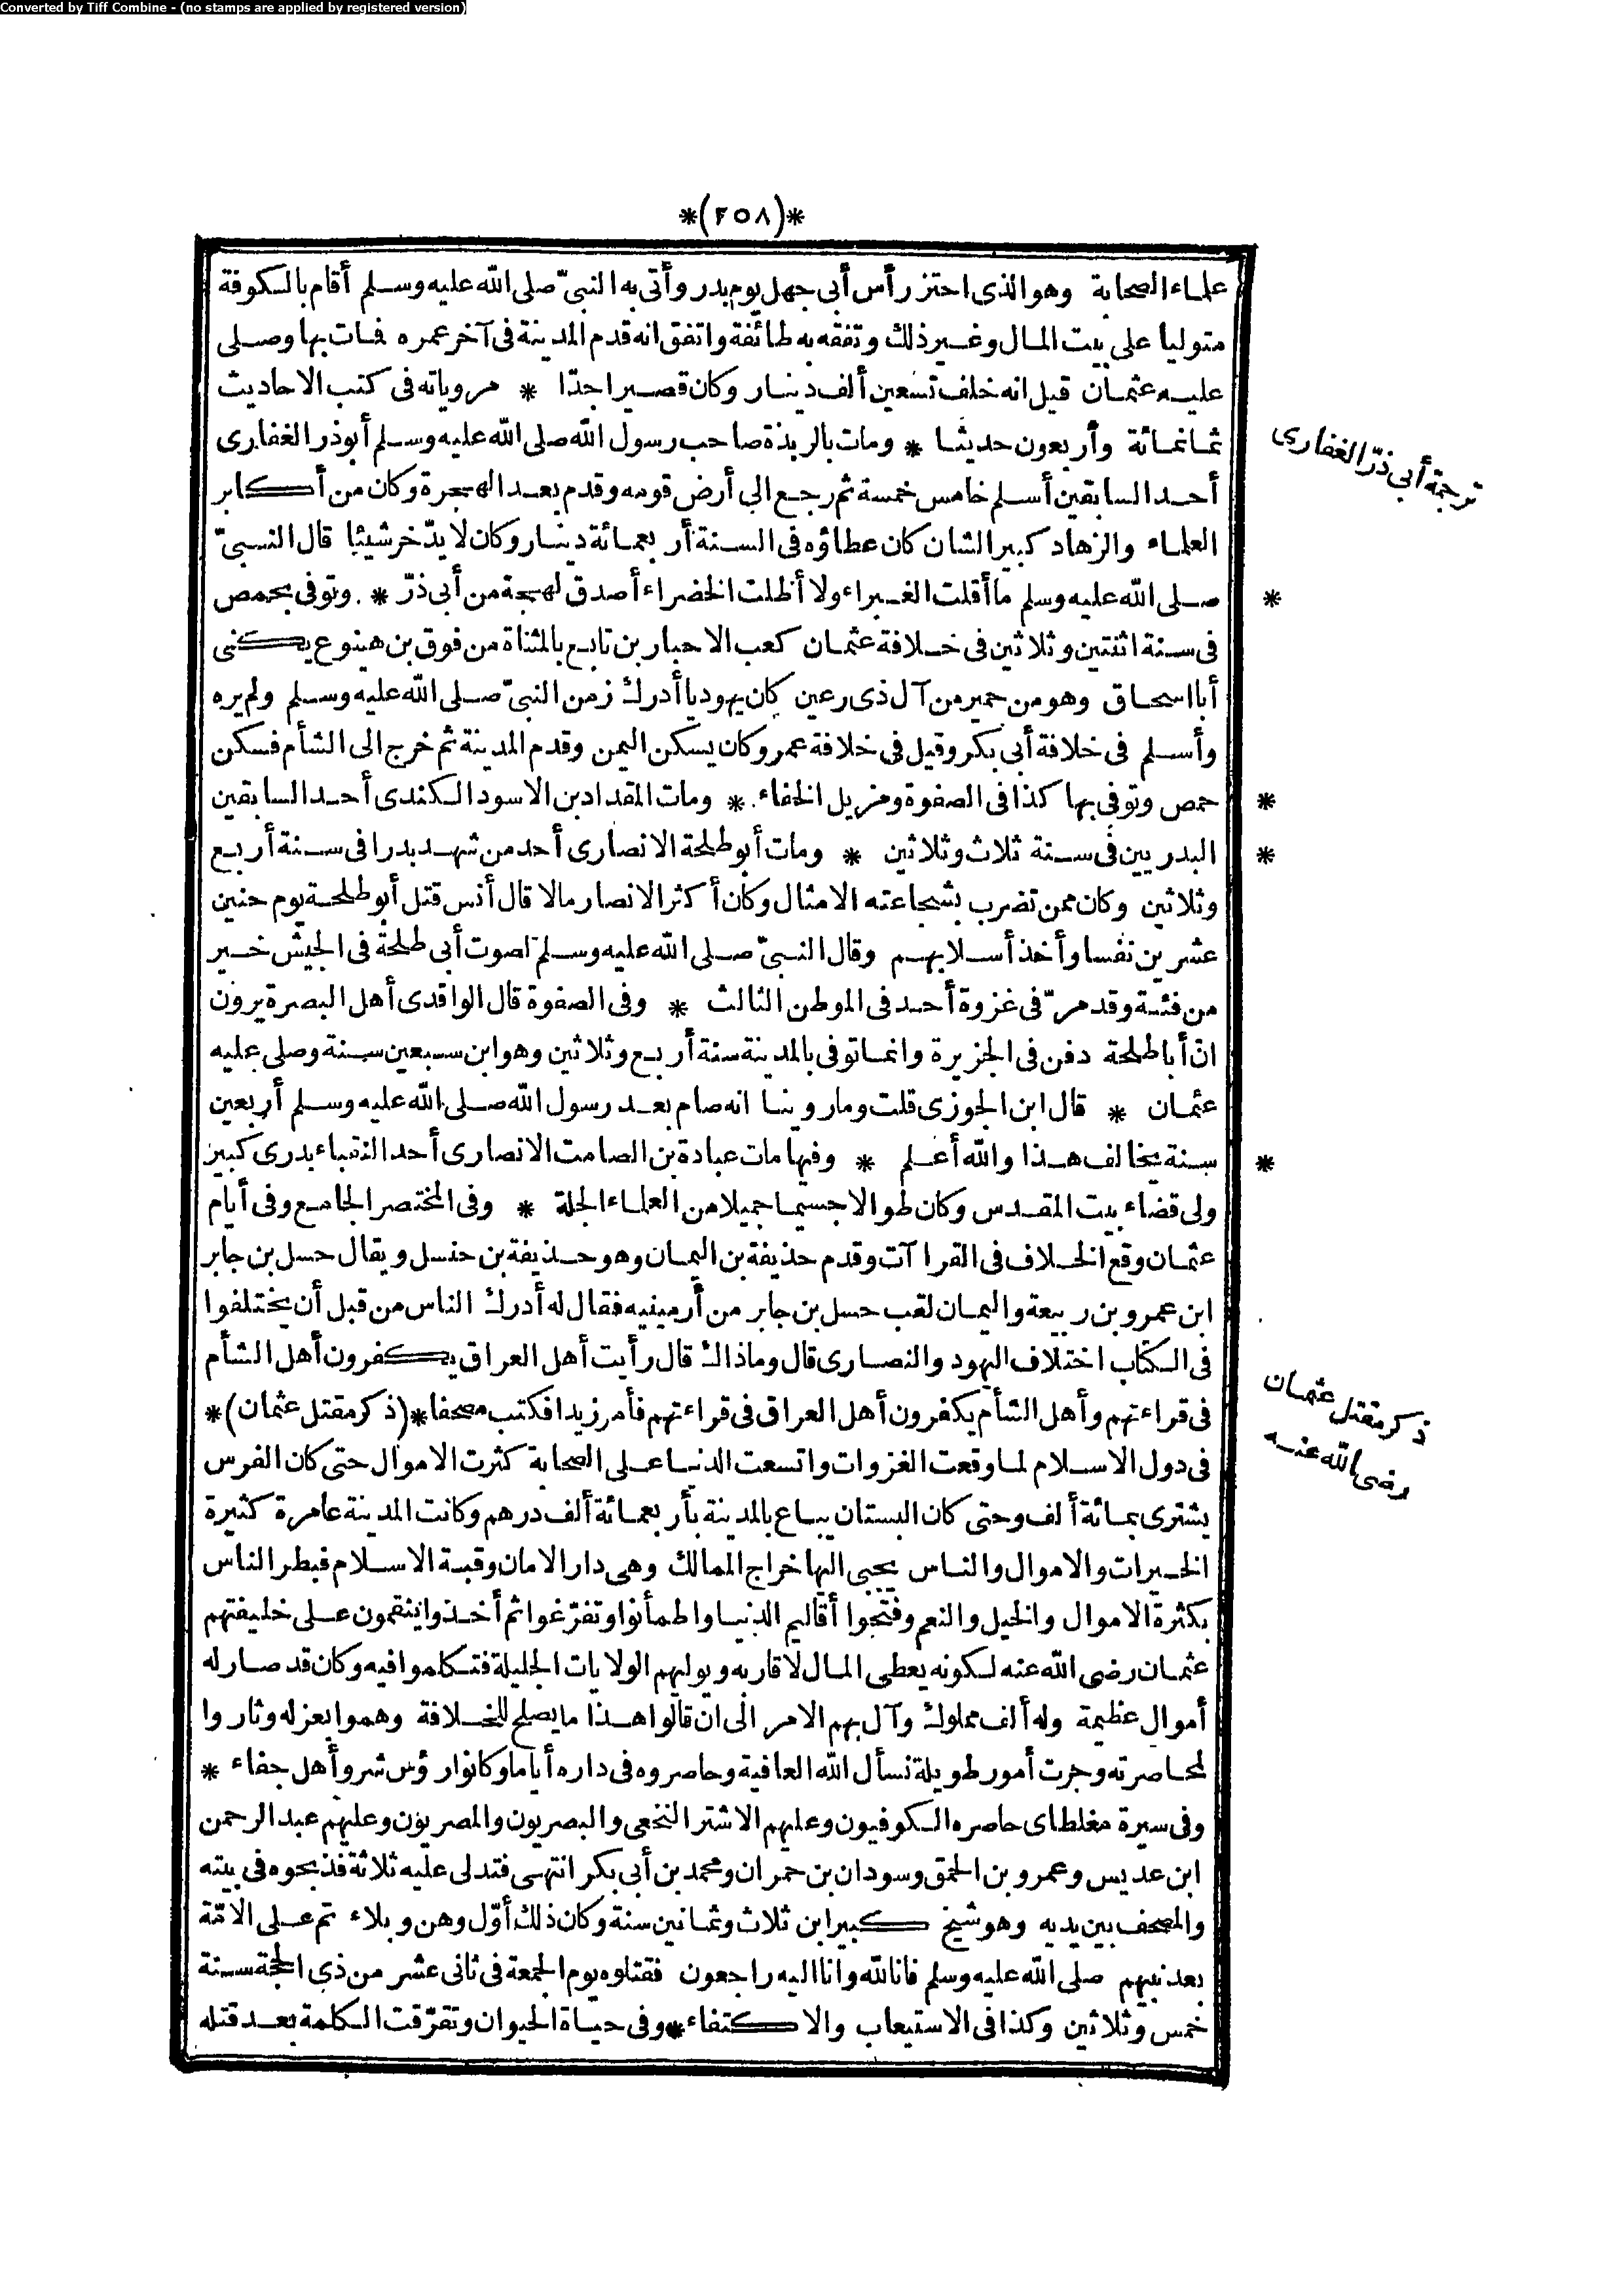 Converted by Tiff Combine - (no stamps are applied by registered version)
*(٢٥٨)*
علماء الصحابة وهو الذى احتز رأس أبى جهل يوم بدر وأتى به النبىّ صلى الله عليه وسلم أقام بالكوفة
متوليا على بيت المال وغير ذلك وتفقه به طائفة واتفق انه قدم المدينة فى آخر عمره فمات بها وصلى
عليه عثمان قيل انه خلف تسعين ألف دينار وكان قصيرا جدّا * مروياته فى كتب الاحاديث
ثمانمائة وأربعون حديثا * ومات بالربذة صاحب رسول الله صلى الله عليه وسلم أبوذر الغفارى
ترجمة أبى ذرّ الغفارى
أحد السابقين أسلم خامس خمسة ثم رجع الى أرض قومه وقدم بعد الهجرة وكان من أكابر
العلماء والزهاد كبير الشان كان عطاؤه فى السنة أربعمائة دينار وكان لا يدّخر شيئا قال النبىّ
صلى الله عليه وسلم ما أقلت الغبراء ولا أظلت الخضراء أصدق لهجة من أبى ذرّ * وتوفى بحمص *
فى سنة اثنتين وثلاثين فى خلافة عثمان كعب الاحبار بن تابع بالمثناة من فوق بن هينوع يكنى
أبا اسحاق وهو من حمير من آل ذى رعين كان يهوديا أدرك زمن النبىّ صلى الله عليه وسلم ولم يره
وأسلم فى خلافة أبى بكر وقيل فى خلافة عمر وكان يسكن اليمن وقدم المدينة ثم خرج الى الشأم فسكن
حمص وتوفى بها كذا فى الصفوة ومزيل الخفاء * ومات المقداد بن الاسود الكندى أحد السابقين *
البدريين فى سنة ثلاث وثلاثين * ومات أبو طلحة الانصارى أحد من شهد بدرا فى سنة أربع *
وثلاثين وكان ممن تضرب بشجاعته الامثال وكان أكثر الانصار مالا قال أنس قتل أبو طلحة يوم حنين
عشرين نفسا وأخذ أسلابهم وقال النبىّ صلى الله عليه وسلم لصوت أبى طلحة فى الجيش خير
من فئة وقد مرّ فى غزوة أحد فى الموطن الثالث * وفى الصفوة قال الواقدى أهل البصرة يرون
انّ أبا طلحة دفن فى الجزيرة وانما توفى بالمدينة سنة أربع وثلاثين وهو ابن سبعين سنة وصلى عليه
عثمان * قال ابن الجوزى قلت وما روينا انه صام بعد رسول الله صلى الله عليه وسلم أربعين
سنة يخالف هذا والله أعلم * وفيها مات عبادة بن الصامت الانصارى أحد النقباء بدرى كبير *
ولى قضاء بيت المقدس وكان طوالا جسيما جميلا من العلماء الجلة * وفى المختصر الجامع وفى أيام
عثمان وقع الخلاف فى القرا آت وقدم حذيفة بن اليمان وهو حذيفة بن حنسل ويقال حسل بن جابر
ابن عمرو بن ربيعة واليمان لقب حسل بن جابر من أرمينيه فقال له أدرك الناس من قبل أن يختلفوا
فى الكتاب اختلاف اليهود والنصارى قال وما ذاك قال رأيت أهل العراق يكفرون أهل الشأم
فى قراءتهم وأهل الشأم يكفرون أهل العراق فى قراءتهم فأمر زيدا فكتب مصحفا *(ذكر مقتل عثمان)*
ذكر مقتل عثمان
رضى الله عنه
فى دول الاسلام لما وقعت الغزوات واتسعت الدنيا على الصحابة كثرت الاموال حتى كان الفرس
يشترى بمائة ألف وحتى كان البستان يباع بالمدينة بأربعمائة ألف درهم وكانت المدينة عامرة كثيرة
الخيرات والاموال والناس يجبى اليها خراج الممالك وهى دار الامان وقبة الاسلام فبطر الناس
بكثرة الاموال والخيل والنعم وفتحوا أقاليم الدنيا واطمأنوا وتفرّغوا ثم أخذوا ينقمون على خليفتهم
عثمان رضى الله عنه لكونه يعطى المال لاقاربه ويوليهم الولايات الجليلة فتكلموا فيه وكان قد صار له
أموال عظيمة وله ألف مملوك وآل بهم الامر الى ان قالوا هذا ما يصلح للخلافة وهموا بعزله وثاروا
لمحاصرته وجرت أمور طويلة نسأل الله العافية وحاصروه فى داره أياما وكانوا رؤس شر وأهل جفاء *
وفى سيرة مغلطاى حاصره الكوفيون وعليهم الاشتر النخعى والبصريون والمصريون وعليهم عبد الرحمن
ابن عديس وعمرو بن الحمق وسودان بن حمران ومحمد بن أبى بكر انتهى فتدلى عليه ثلاثة فذبحوه فى بيته
والمصحف بين يديه وهو شيخ كبير ابن ثلاث وثمانين سنة وكان ذلك أوّل وهن وبلاء تم على الامّة
بعد نبيهم صلى الله عليه وسلم فانا لله وانا اليه راجعون فقتلوه يوم الجمعة فى ثانى عشر من ذى الحجة سنة
خمس وثلاثين وكذا فى الاستيعاب والاكتفاء * وفى حياة الحيوان وتفرّقت الكلمة بعد قتله